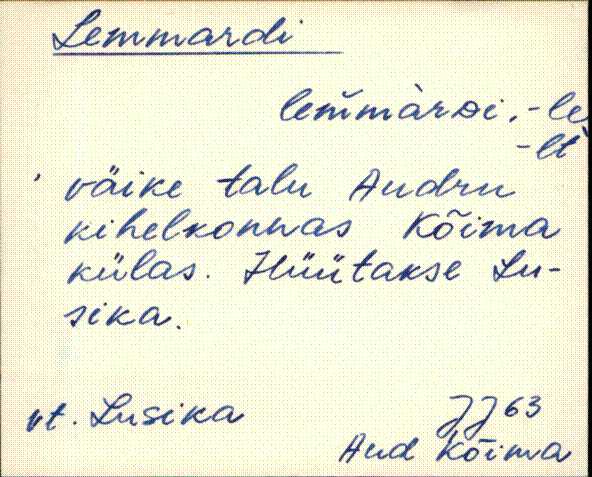 Lemmardi
lem̆màrDi, -le
-lt
väike talu Audru
kihelkonnas Kõima
külas. Hüütakse Lu-
sika.
vt. Lusika
JJ 63
Aud Kõima